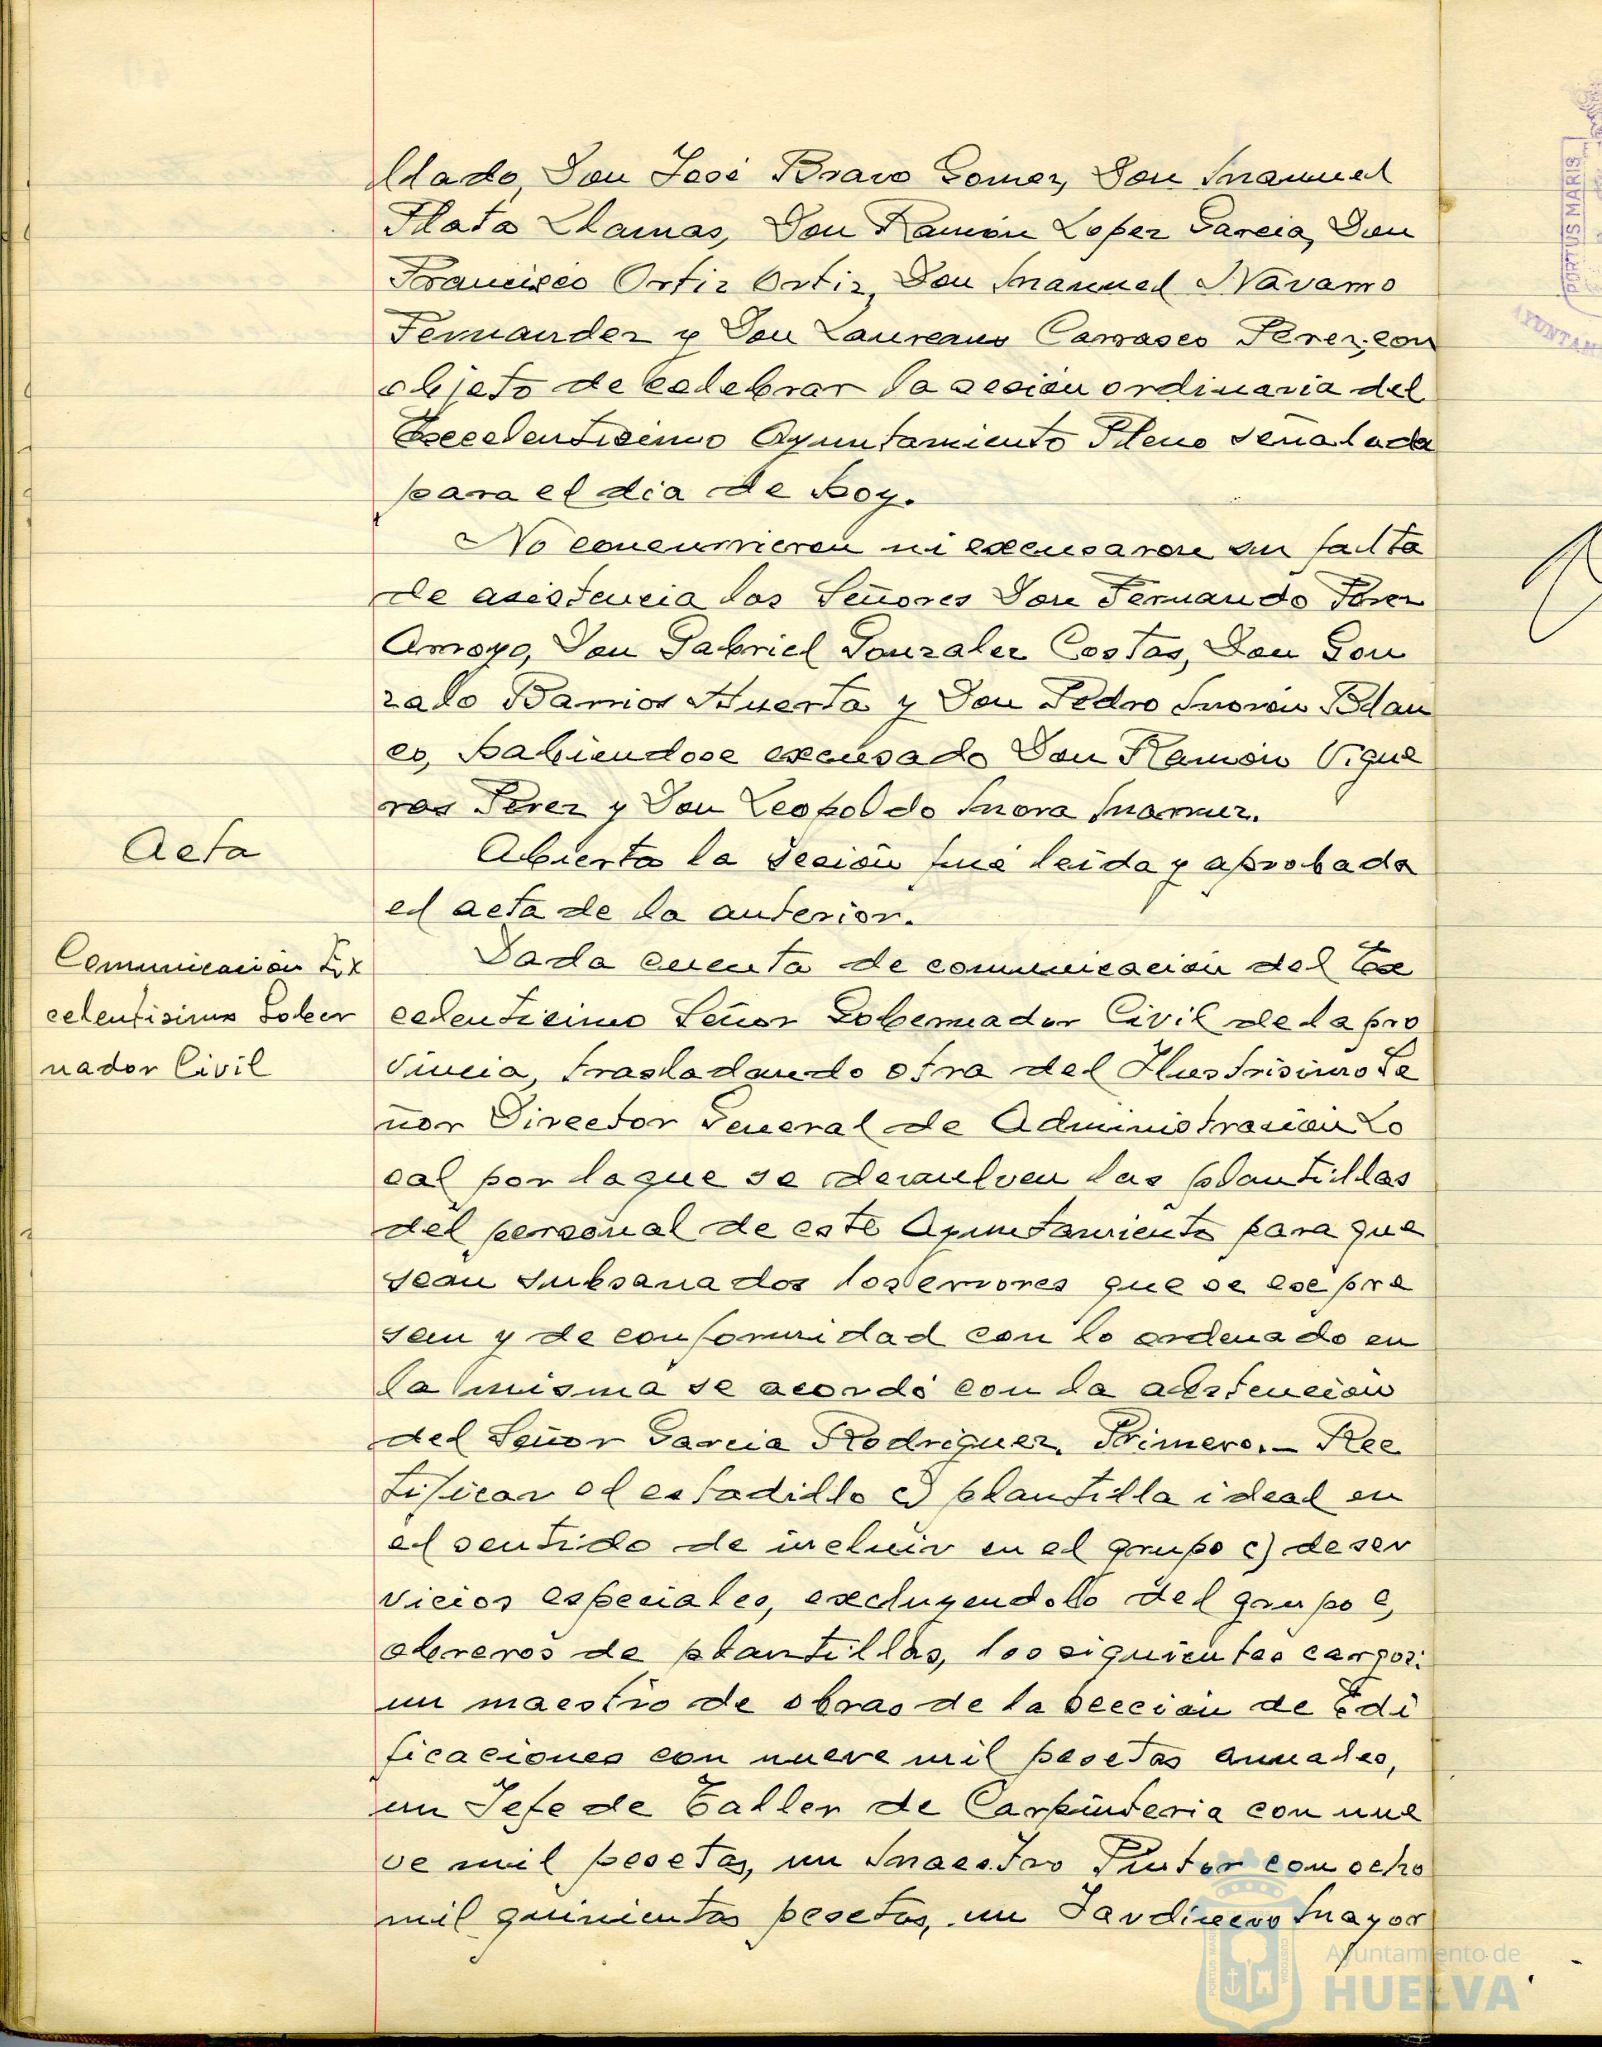 llado, Don José Bravo Gomez, Don Manuel
Plata Llamas, Don Ramón Lopez Garcia, Don
Francisco Ortiz Ortiz, Don Manuel Navarro
Fernandez y Don Laureano Carrasco Perez, con
objeto de celebrar la sesión ordinaria del
Excelentisimo Ayuntamiento Pleno señalada
para el dia de hoy.
No concurrieron ni excusaron su falta
de asistencia los Señores Don Fernando Perez
Arroyo, Don Gabriel Gonzalez Costas, Don Gon
zalo Barrios Huerta y Don Pedro Morón Blan
co, habiendose excusado Don Ramón Vigue
ras Perez y Don Leopoldo Mora
Acta
Abierta la sesión fué leida y aprobada
el acta de la anterior.
Comunicación Ex
celentisimo Gober
nador Civil
Dada cuenta de comunicación del Ex
celentisimo Señor Gobernador Civil de la pro
vincia, trasladando otra del Ilustrisimo Se
ñor Director General de Administración Lo
cal por la que se devuelven las plantillas
del personal de este Ayuntamiento para que
sean subsanados los errores que se expre
san y de conformidad con lo ordenado en
la misma se acordó con la abstención
del Señor Garcia Rodriguez. Primero.- Rec
tificar el estadillo c) plantilla ideal en
el sentido de incluir en el grupo c) de ser
vicios especiales, excluyendolo del grupo e,
obreros de plantillas, los siguientes cargos:
un maestro de obras de la sección de Edi
ficaciones con nueve mil pesetas anuales,
un Jefe de Taller de Carpinteria con nue
ve mil pesetas, un Maestro Pintor con ocho
mil quinientas pesetas, un Jardinero Mayor
PORTUS MARIS
Ayuntamiento de
HUELVA